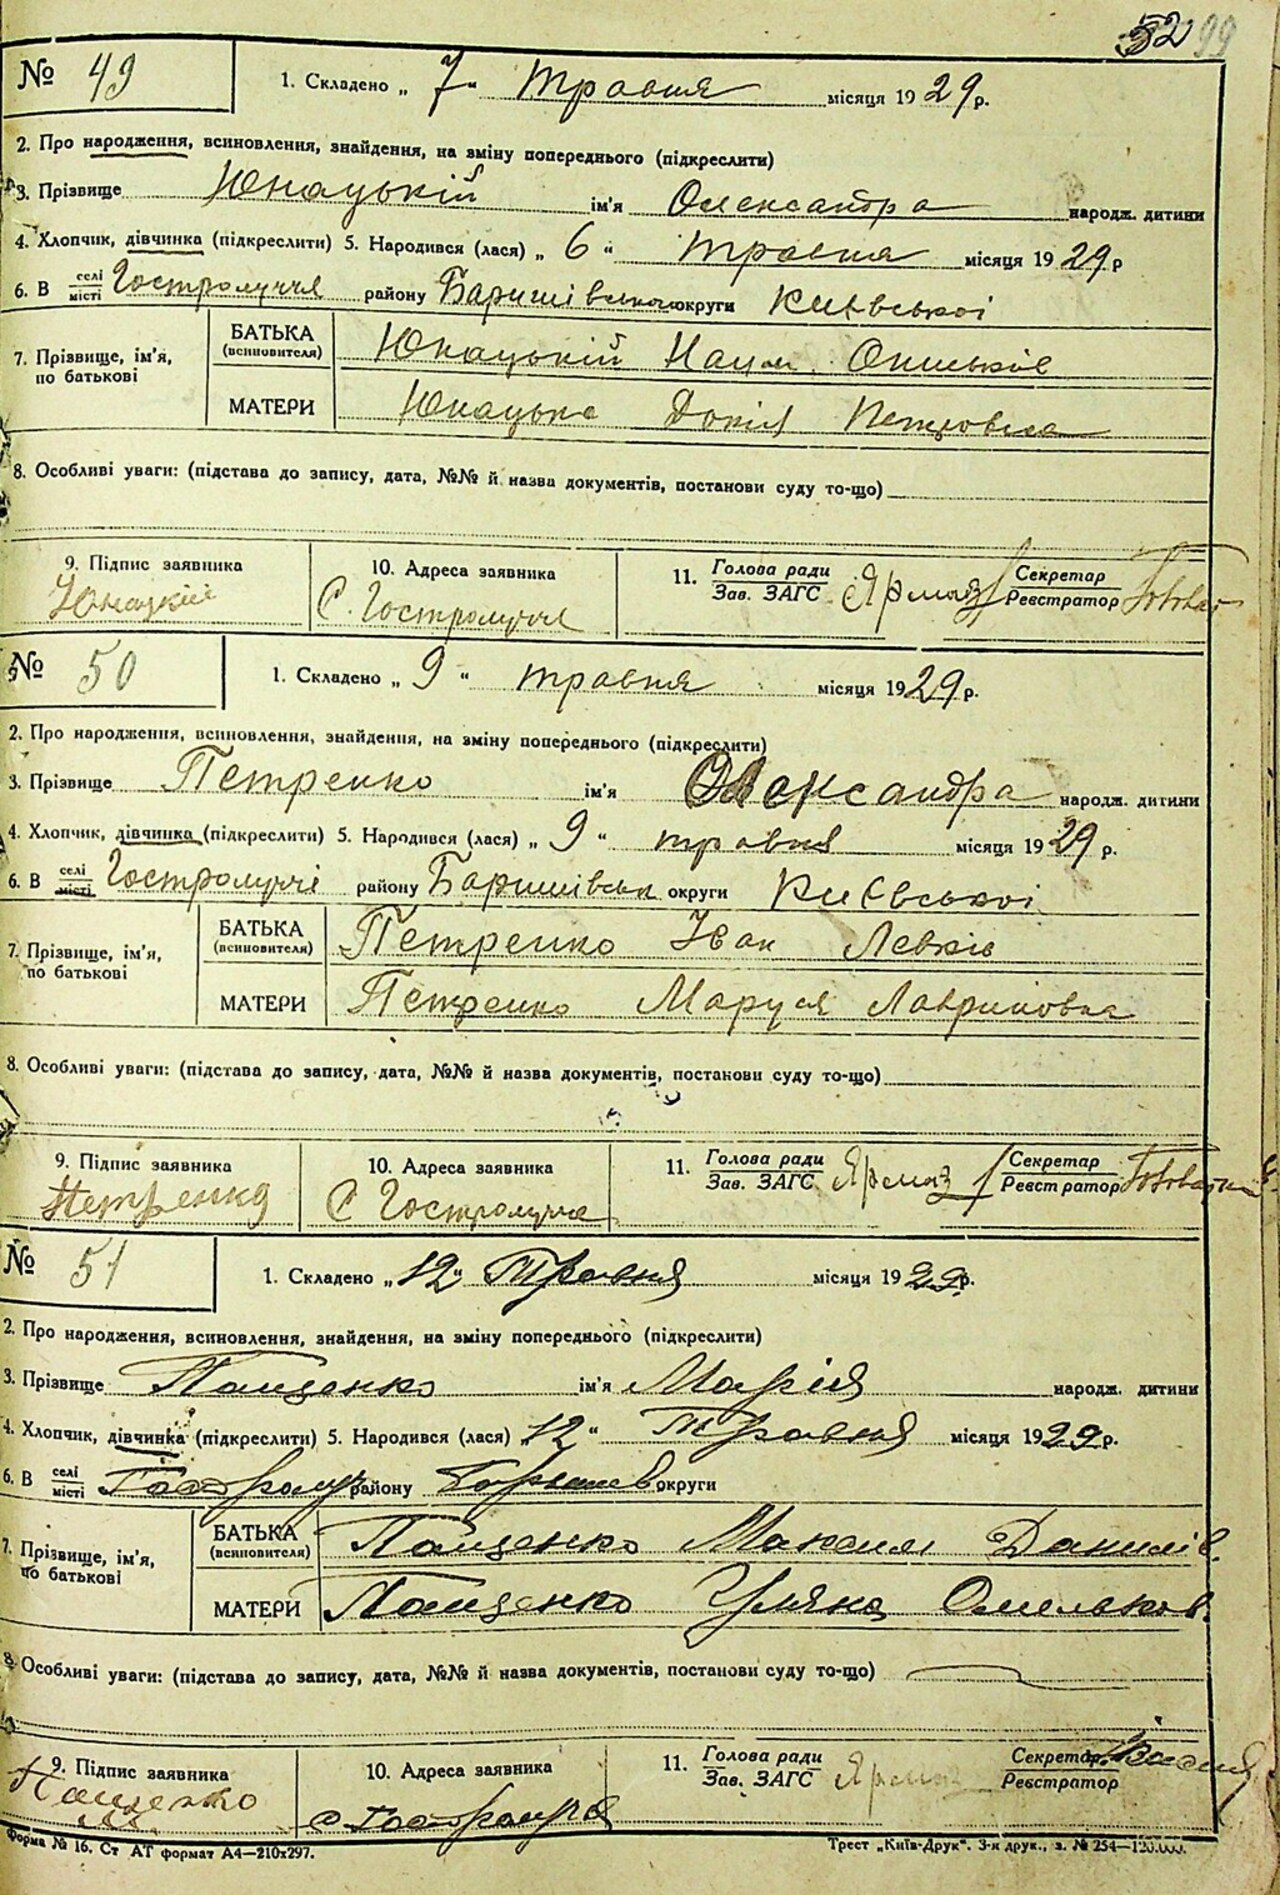 52 99
№ 49 1. Складено „ 7 “ травня місяця 1929 р.
2. Про народження, всиновлення, знайдення, на зміну попереднього (підкреслити)
3. Прізвище Юнацький ім'я Олександра народж. дитини
4. Хлопчик, дівчинка (підкреслити) 5. Народився (лася) „ 6 “ травня місяця 1929 р
6. В селі/місті Гостролуччя району Баришівської округи Київської
БАТЬКА (всиновителя) Юнацький Наум
7. Прізвище, ім'я, по батькові
МАТЕРИ Юнацька Докія Петровна
8. Особливі уваги: (підстава до запису, дата, №№ й назва документів, постанови суду то-що)
9. Підпис заявника 10. Адреса заявника 11. Голова ради / Зав. ЗАГС Ярмаз Секретар / Реєстратор
Юнацкий С. Гостролуччя
№ 50 1. Складено „ 9 “ травня місяця 1929 р.
2. Про народження, всиновлення, знайдення, на зміну попереднього (підкреслити)
3. Прізвище Петренко ім'я Олександра народж. дитини
4. Хлопчик, дівчинка (підкреслити) 5. Народився (лася) „ 9 “ травня місяця 1929 р.
6. В селі/місті Гостролуччі району Баришівськ округи Київської
БАТЬКА (всиновителя) Петренко Іван Левків
7. Прізвище, ім'я, по батькові
МАТЕРИ Петренко Маруся Лавриновна
8. Особливі уваги: (підстава до запису, дата, №№ й назва документів, постанови суду то-що)
9. Підпис заявника 10. Адреса заявника 11. Голова ради / Зав. ЗАГС Ярмаз Секретар / Реєстратор
Петренко С Гостролуччя
№ 51 1. Складено „ 12 “ Травня місяця 1929 р.
2. Про народження, всиновлення, знайдення, на зміну попереднього (підкреслити)
3. Прізвище Пащенко ім'я Марія народж. дитини
4. Хлопчик, дівчинка (підкреслити) 5. Народився (лася) „ 12 “ Травня місяця 1929 р.
6. В селі/місті Гостролуч району Баришев округи
БАТЬКА (всиновителя) Пащенко Максим Данилів.
7. Прізвище, ім'я, по батькові
МАТЕРИ Пащенко Уляна Омельков.
8. Особливі уваги: (підстава до запису, дата, №№ й назва документів, постанови суду то-що)
9. Підпис заявника 10. Адреса заявника 11. Голова ради / Зав. ЗАГС Ярмаз Секретар / Реєстратор
Пащенко с Гостролуча
Форма № 16. Ст АТ формат А4—210x297. Трест „Київ-Друк“. 3-я друк., з. № 254—120.000.